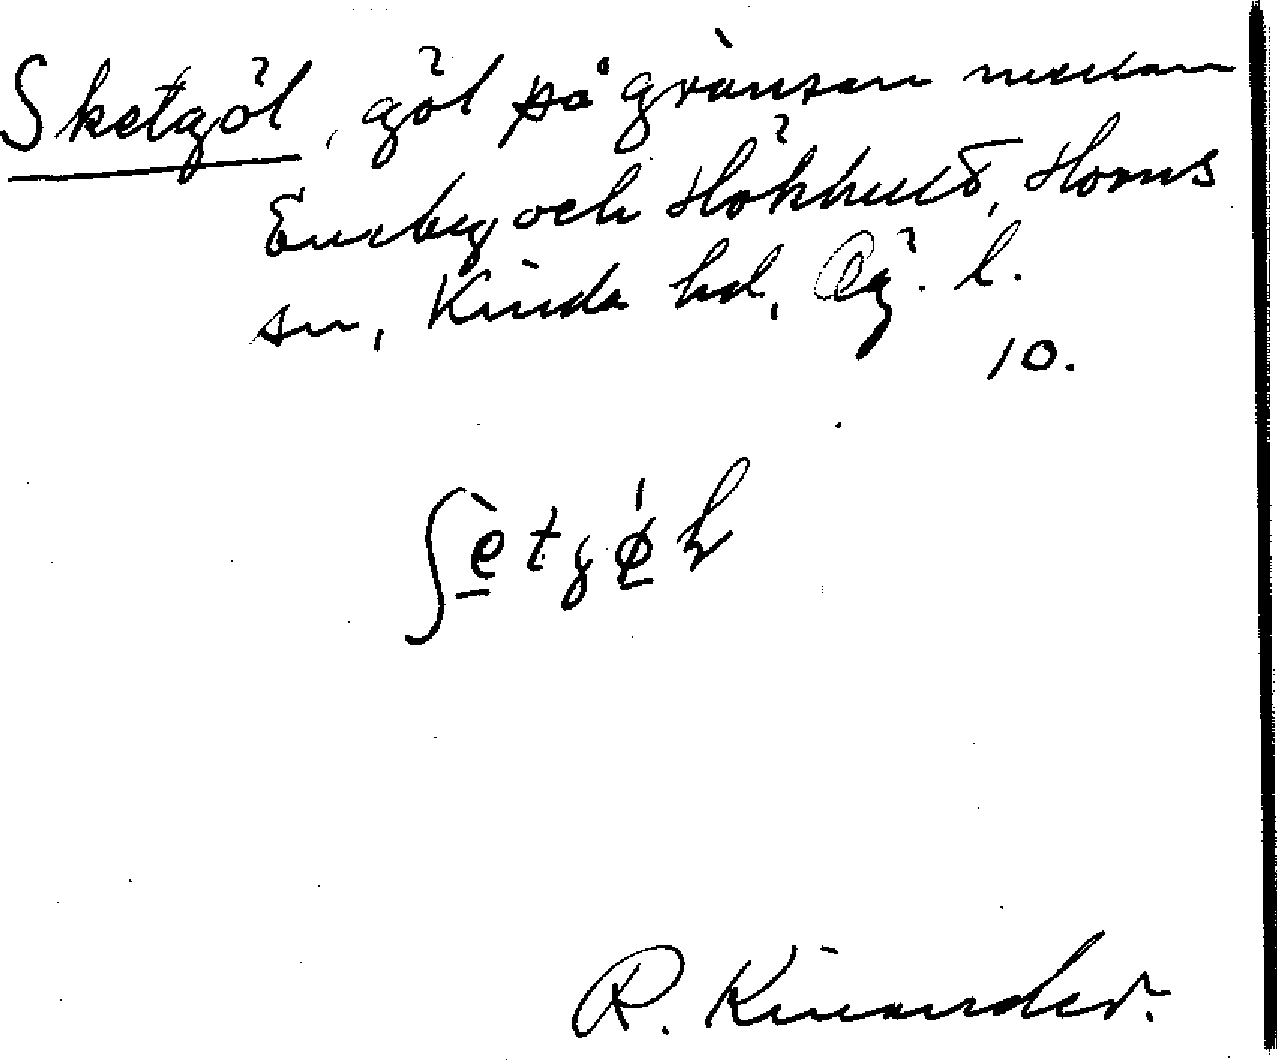 Sketgöl, göl på gränsen mellan
Eneby och Hökhult, Horns
sn, Kinda hd, Ög. l.
10.
ʃètgø̀l
R. Kinander.